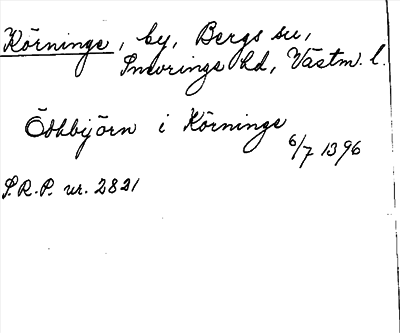 Körninge, by, Bergs sn,
Snevringe hd, Västm. l.
Öthbijörn i Körninge
6/7 1396
S.R.P. nr. 2821